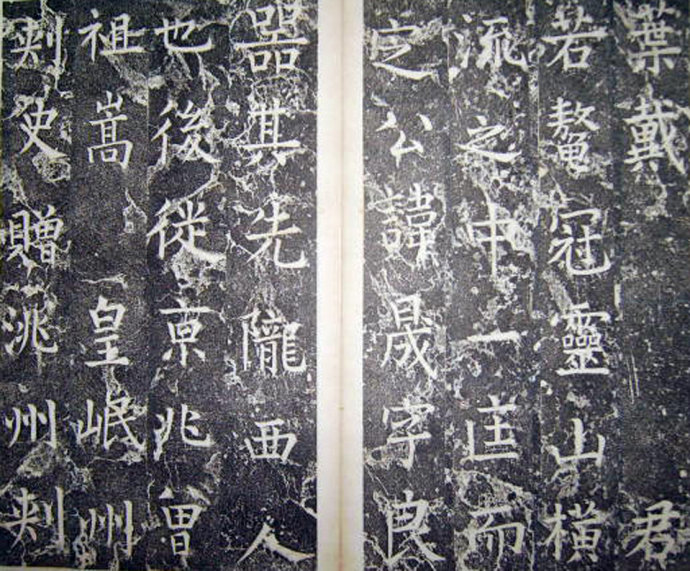 葉戴君
若鼇冠靈山橫
流之中一匡而
定公諱晟字良
器其先隴西人
也後徙京兆曾
祖嵩皇岷州
刺史贈洮州刺